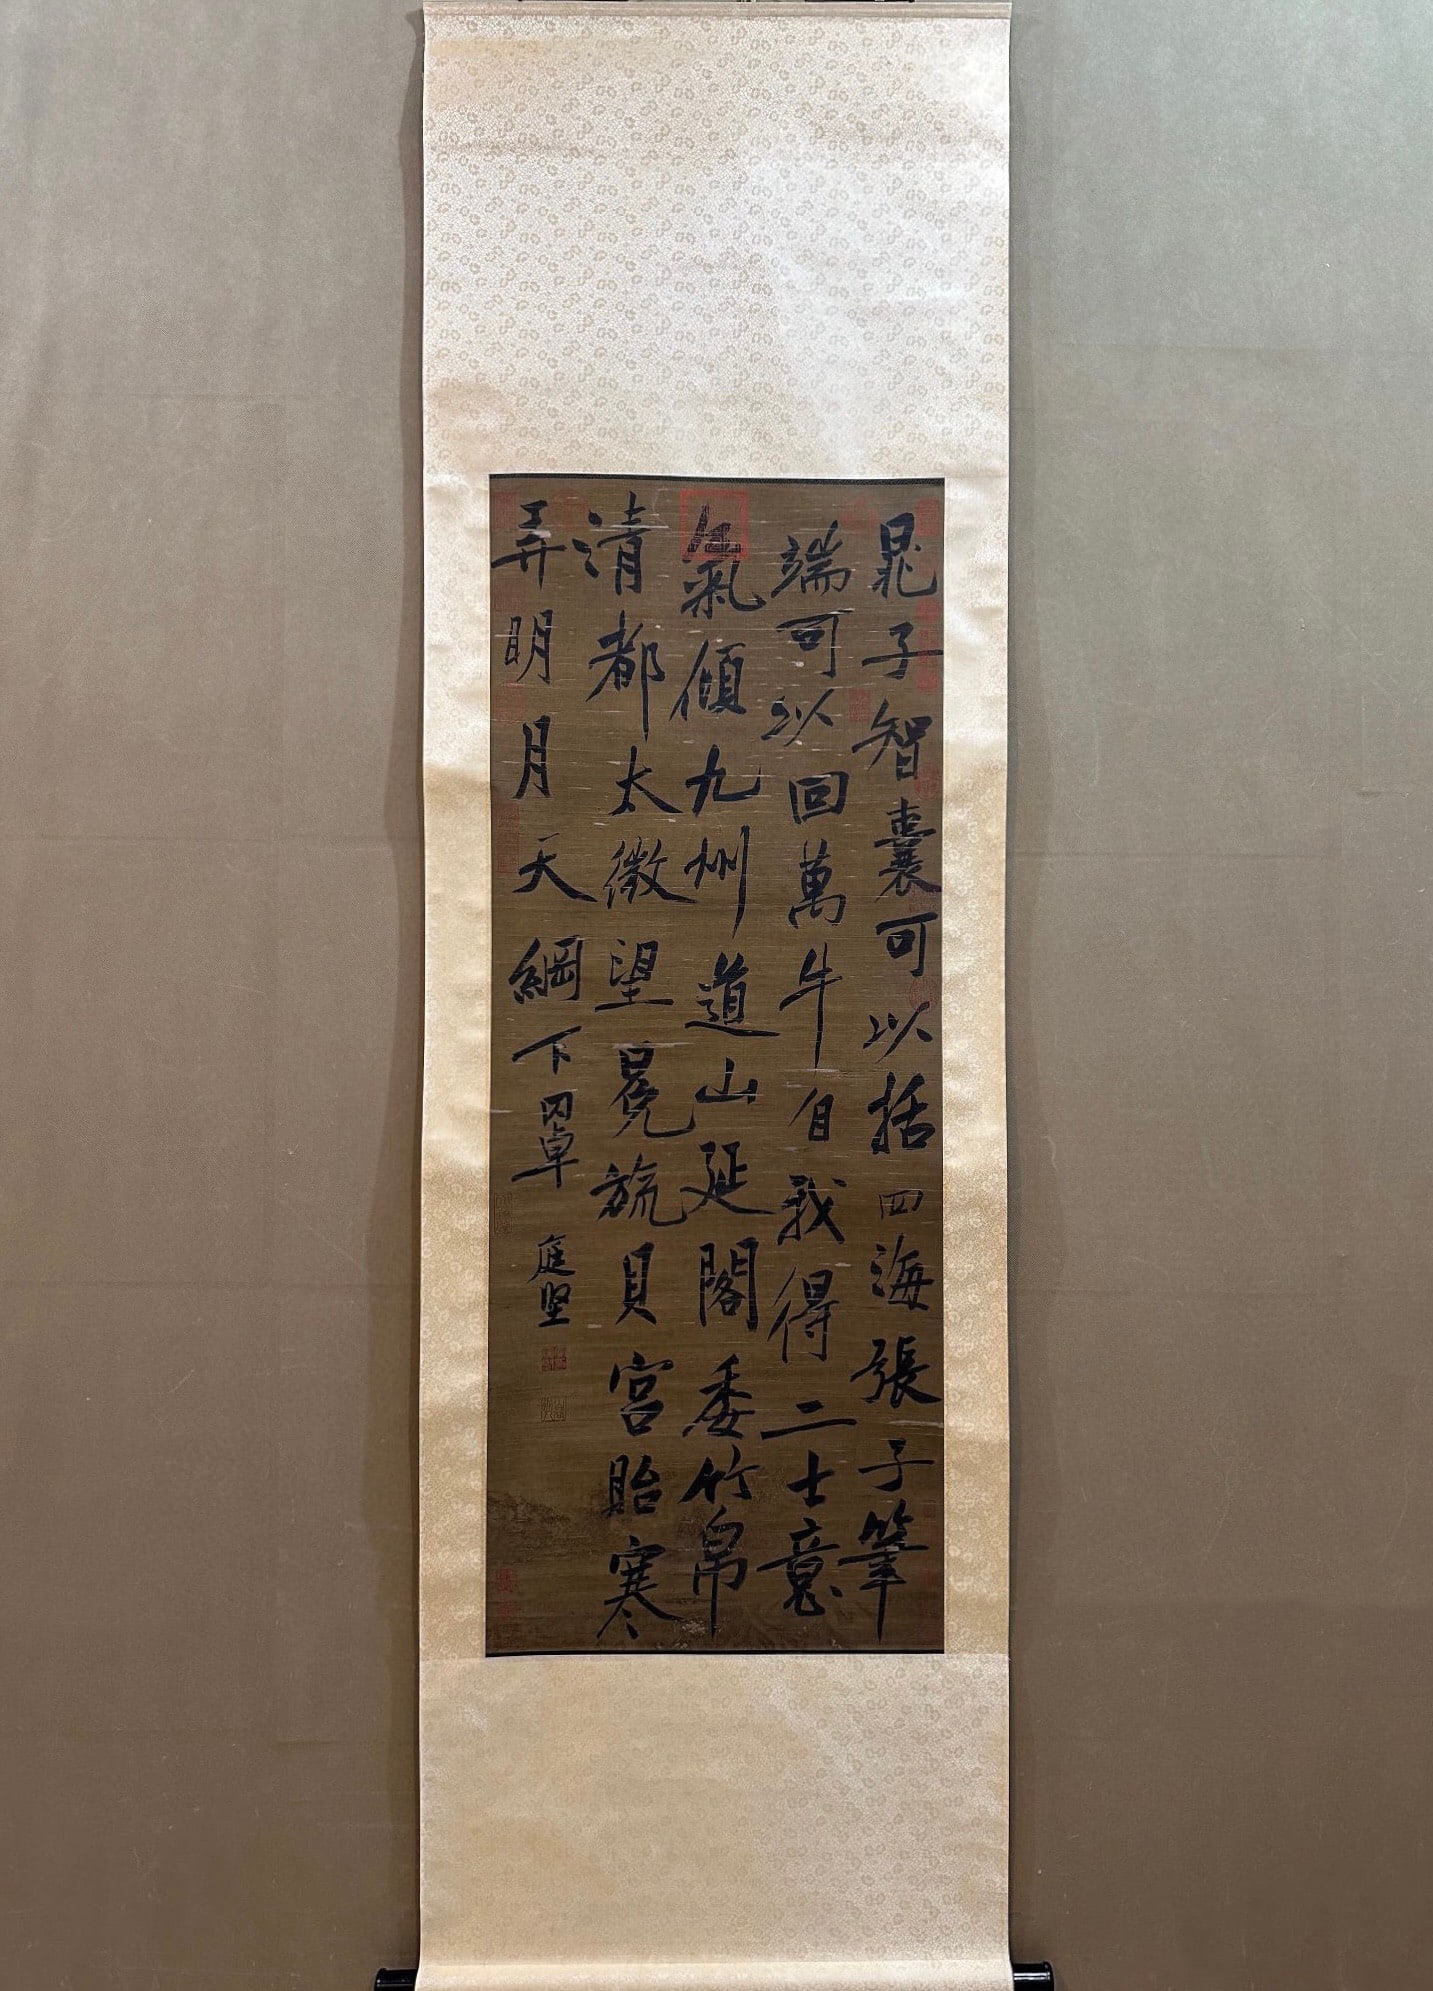 晁子智囊可以括四海張子筆
端可以回萬牛自我得二士意
氣傾九州道山延閣委竹帛
清都太微望冕旒貝宮胎寒
弄明月天網下罩
庭堅